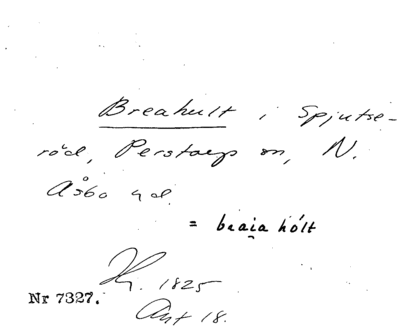 Breahult i Spjutse-
röd, Perstorps sn, N.
Åsbo hd.
= braia hólt
1825
Nr 7327.
Akt 18.